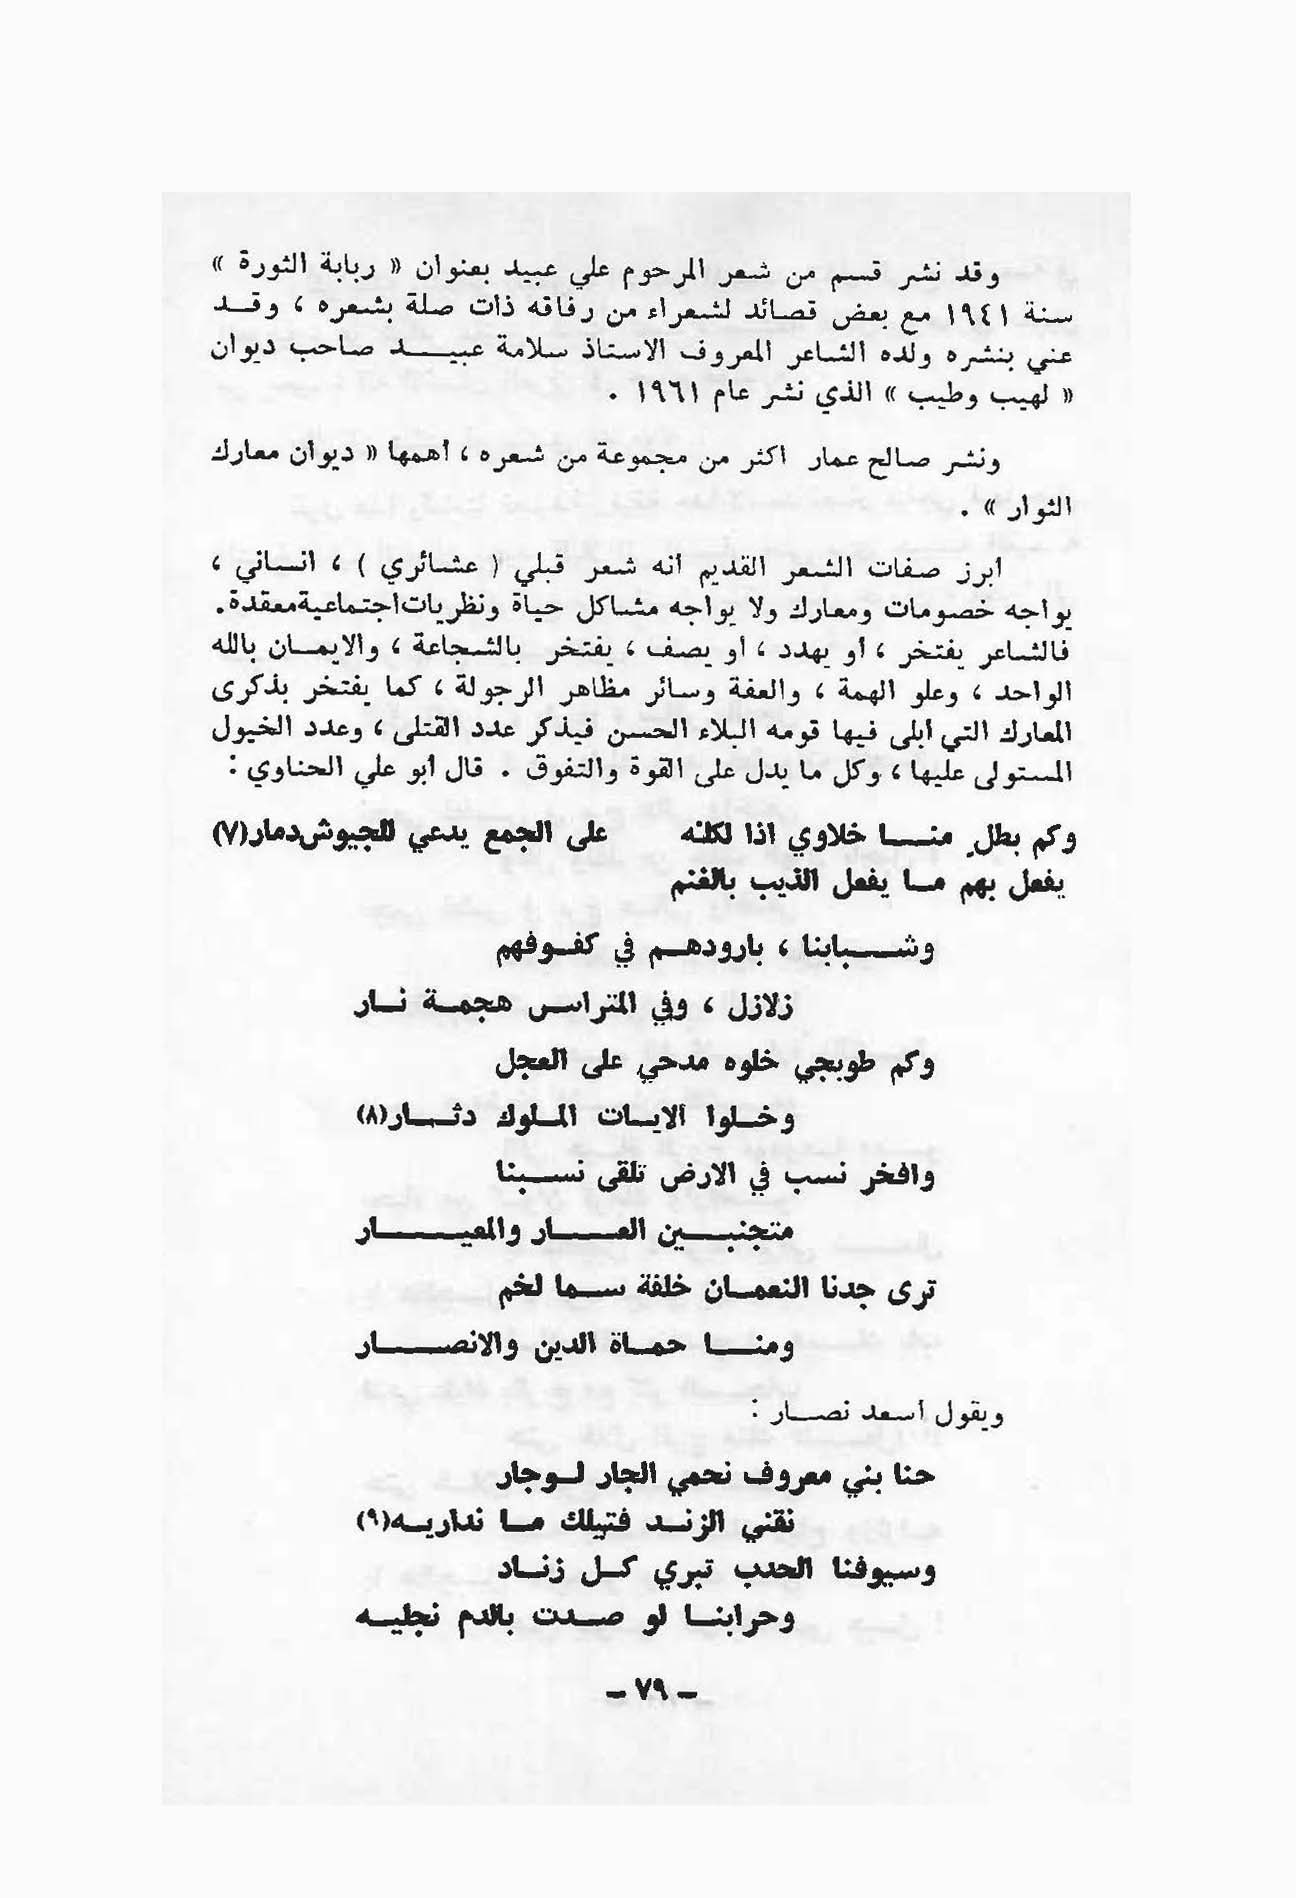 وقد نشر قسم من شعر المرحوم علي عبيد بعنوان « ربابة الثورة »
سنة ١٩٤١ مع بعض قصائد لشعراء من رفاقه ذات صلة بشعره ، وقــد
عني بنشره ولده الشاعر المعروف الاستاذ سلامة عبيـــد صاحب ديوان
« لهيب وطيب » الذي نشر عام ١٩٦١ .
ونشر صالح عمار اكثر من مجموعة من شعره ، أهمها « ديوان معارك
الثوار » .
أبرز صفات الشعر القديم أنه شعر قبلي ( عشائري ) ، انساني ،
يواجه خصومات ومعارك ولا يواجه مشاكل حياة ونظريات اجتماعية معقدة.
فالشاعر يفتخر ، أو يهدد ، أو يصف ، يفتخر بالشجاعة ، والايمــان بالله
الواحد ، وعلو الهمة ، والعفة وسائر مظاهر الرجولة ، كما يفتخر بذكرى
المعارك التي أبلى فيها قومه البلاء الحسن فيذكر عدد القتلى ، وعدد الخيول
المستولى عليها ، وكل ما يدل على القوة والتفوق . قال أبو علي الحناوي :
وكم بطلٍ منـــا خلاوي اذا لكلنه على الجمع يدعي للجيوش دمار(٧)
يفعل بهم مــا يفعل الذيب بالغنم
وشــــبابنا ، بارودهــم في كفــوفهم
زلازل ، وفي المتراس هجمــة نــار
وكم طوبجي خلوه مدحي على العجل
وخــلوا آلايــات المــلوك دثــار(٨)
وافخر نسب في الارض تلقى نســـبنا
متجنبـــين العـــار والمعيـــــار
ترى جدنا النعمــان خلفة ســما لخم
ومنـــا حمــاة الدين والانصــــار
ويقول أسعد نصــار :
حنا بني معروف نحمي الجار لــوجار
نقني الزنــد فتيلك مــا نداريــه(٩)
وسيوفنا الحدب تبري كــل زنــاد
وحرابنــا لو صــدت بالدم نجليــه
– ٧٩ –